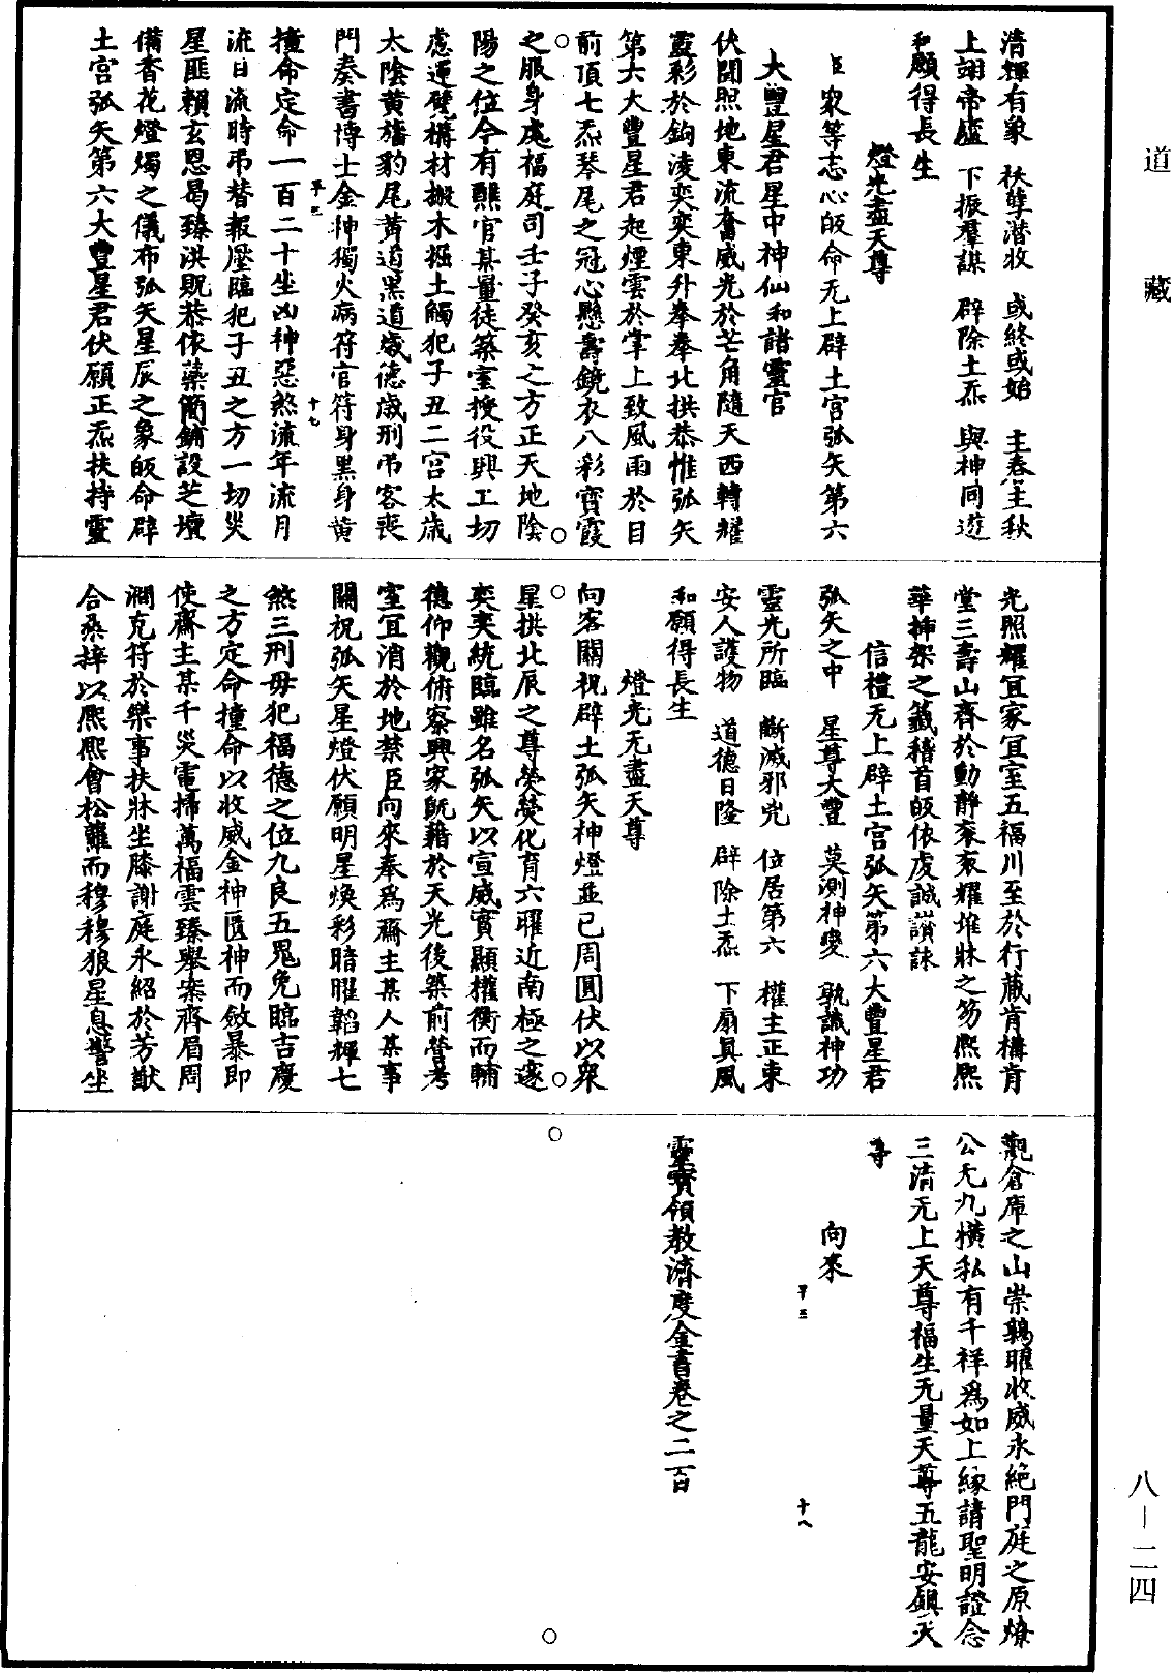 道藏
浩輝有象　秋孽潜收　或終或始　主春主秋
上詡帝廬　下振羣謀　辟除土炁　與神同遊
和願得長生
燈光盡天尊
臣衆等志心皈命无上辟土宫弧矢第六
大豐星君星中神仙和諸靈官
伏聞照地東流奮威光於芒角隨天西轉耀
靈彩於鉤淩奕奕東升拳拳北拱恭惟弧矢
第六大豐星君起煙雲於掌上致風雨於目
前頂七炁琴尾之冠心懸壽鏡衣八彩寶霞
之服身處福庭司壬子癸亥之方正天地陰
陽之位今有醮官某量徒築室授役興工切
慮運甓構材搬木掘土觸犯子丑二宫太歲
太陰黄旛豹尾黄道黑道歲德歲刑弔客喪
門奏書博士金神獨火病符官符身黑身黄
撞命定命一百二十坐凶神惡煞流年流月
流日流時弔替報壓臨犯子丑之方一切災
星匪賴玄恩曷臻洪貺恭依蘂簡鋪設芝壇
備香花燈燭之儀布弧矢星辰之象皈命辟
土宫弧矢第六大豐星君伏願正炁扶持靈
十七
光照耀宜家宜室五福川至於行藏肯構肯
堂三壽山齊於動靜衮衮耀堆牀之笏熙熙
華插架之籤稽首皈依虔誠讃詠
信禮无上辟土宫弧矢第六大豐星君
弧矢之中　星尊大豐　莫測神變　孰識神功
靈光所臨　斷滅邪兇　位居第六　權主正東
安人護物　道德日隆　辟除土炁　下扇真風
和願得長生
燈光无盡天尊
向客關祝辟土弧矢神燈並已周圓伏以衆
星拱北辰之尊熒熒化育六曜近南極之邃
奕奕統臨雖名弧矢以宣威實顯權衡而輔
德仰觀俯察興家旣藉於天光後築前營考
室宜消於地禁臣向來奉爲齋主某人某事
關祝弧矢星燈伏願明星煥彩暗曜韜輝七
煞三刑毋犯福德之位九良五鬼免臨吉慶
之方定命撞命以收威金神匶神而斂暴即
使齋主某千災電掃萬福雲臻舉案齊眉周
澗克符於樂事扶牀坐膝謝庭永紹於芳猷
合桑梓以熙熙會松蘿而穆穆狼星息警坐
觀倉庫之山崇鶉曜收威永絶門庭之原燎
公无九横私有千祥爲如上縁請聖明證念
三清无上天尊福生无量天尊五龍安鎮天
尊
向來
十八
靈寶領教濟度金書卷之二百
八－二四